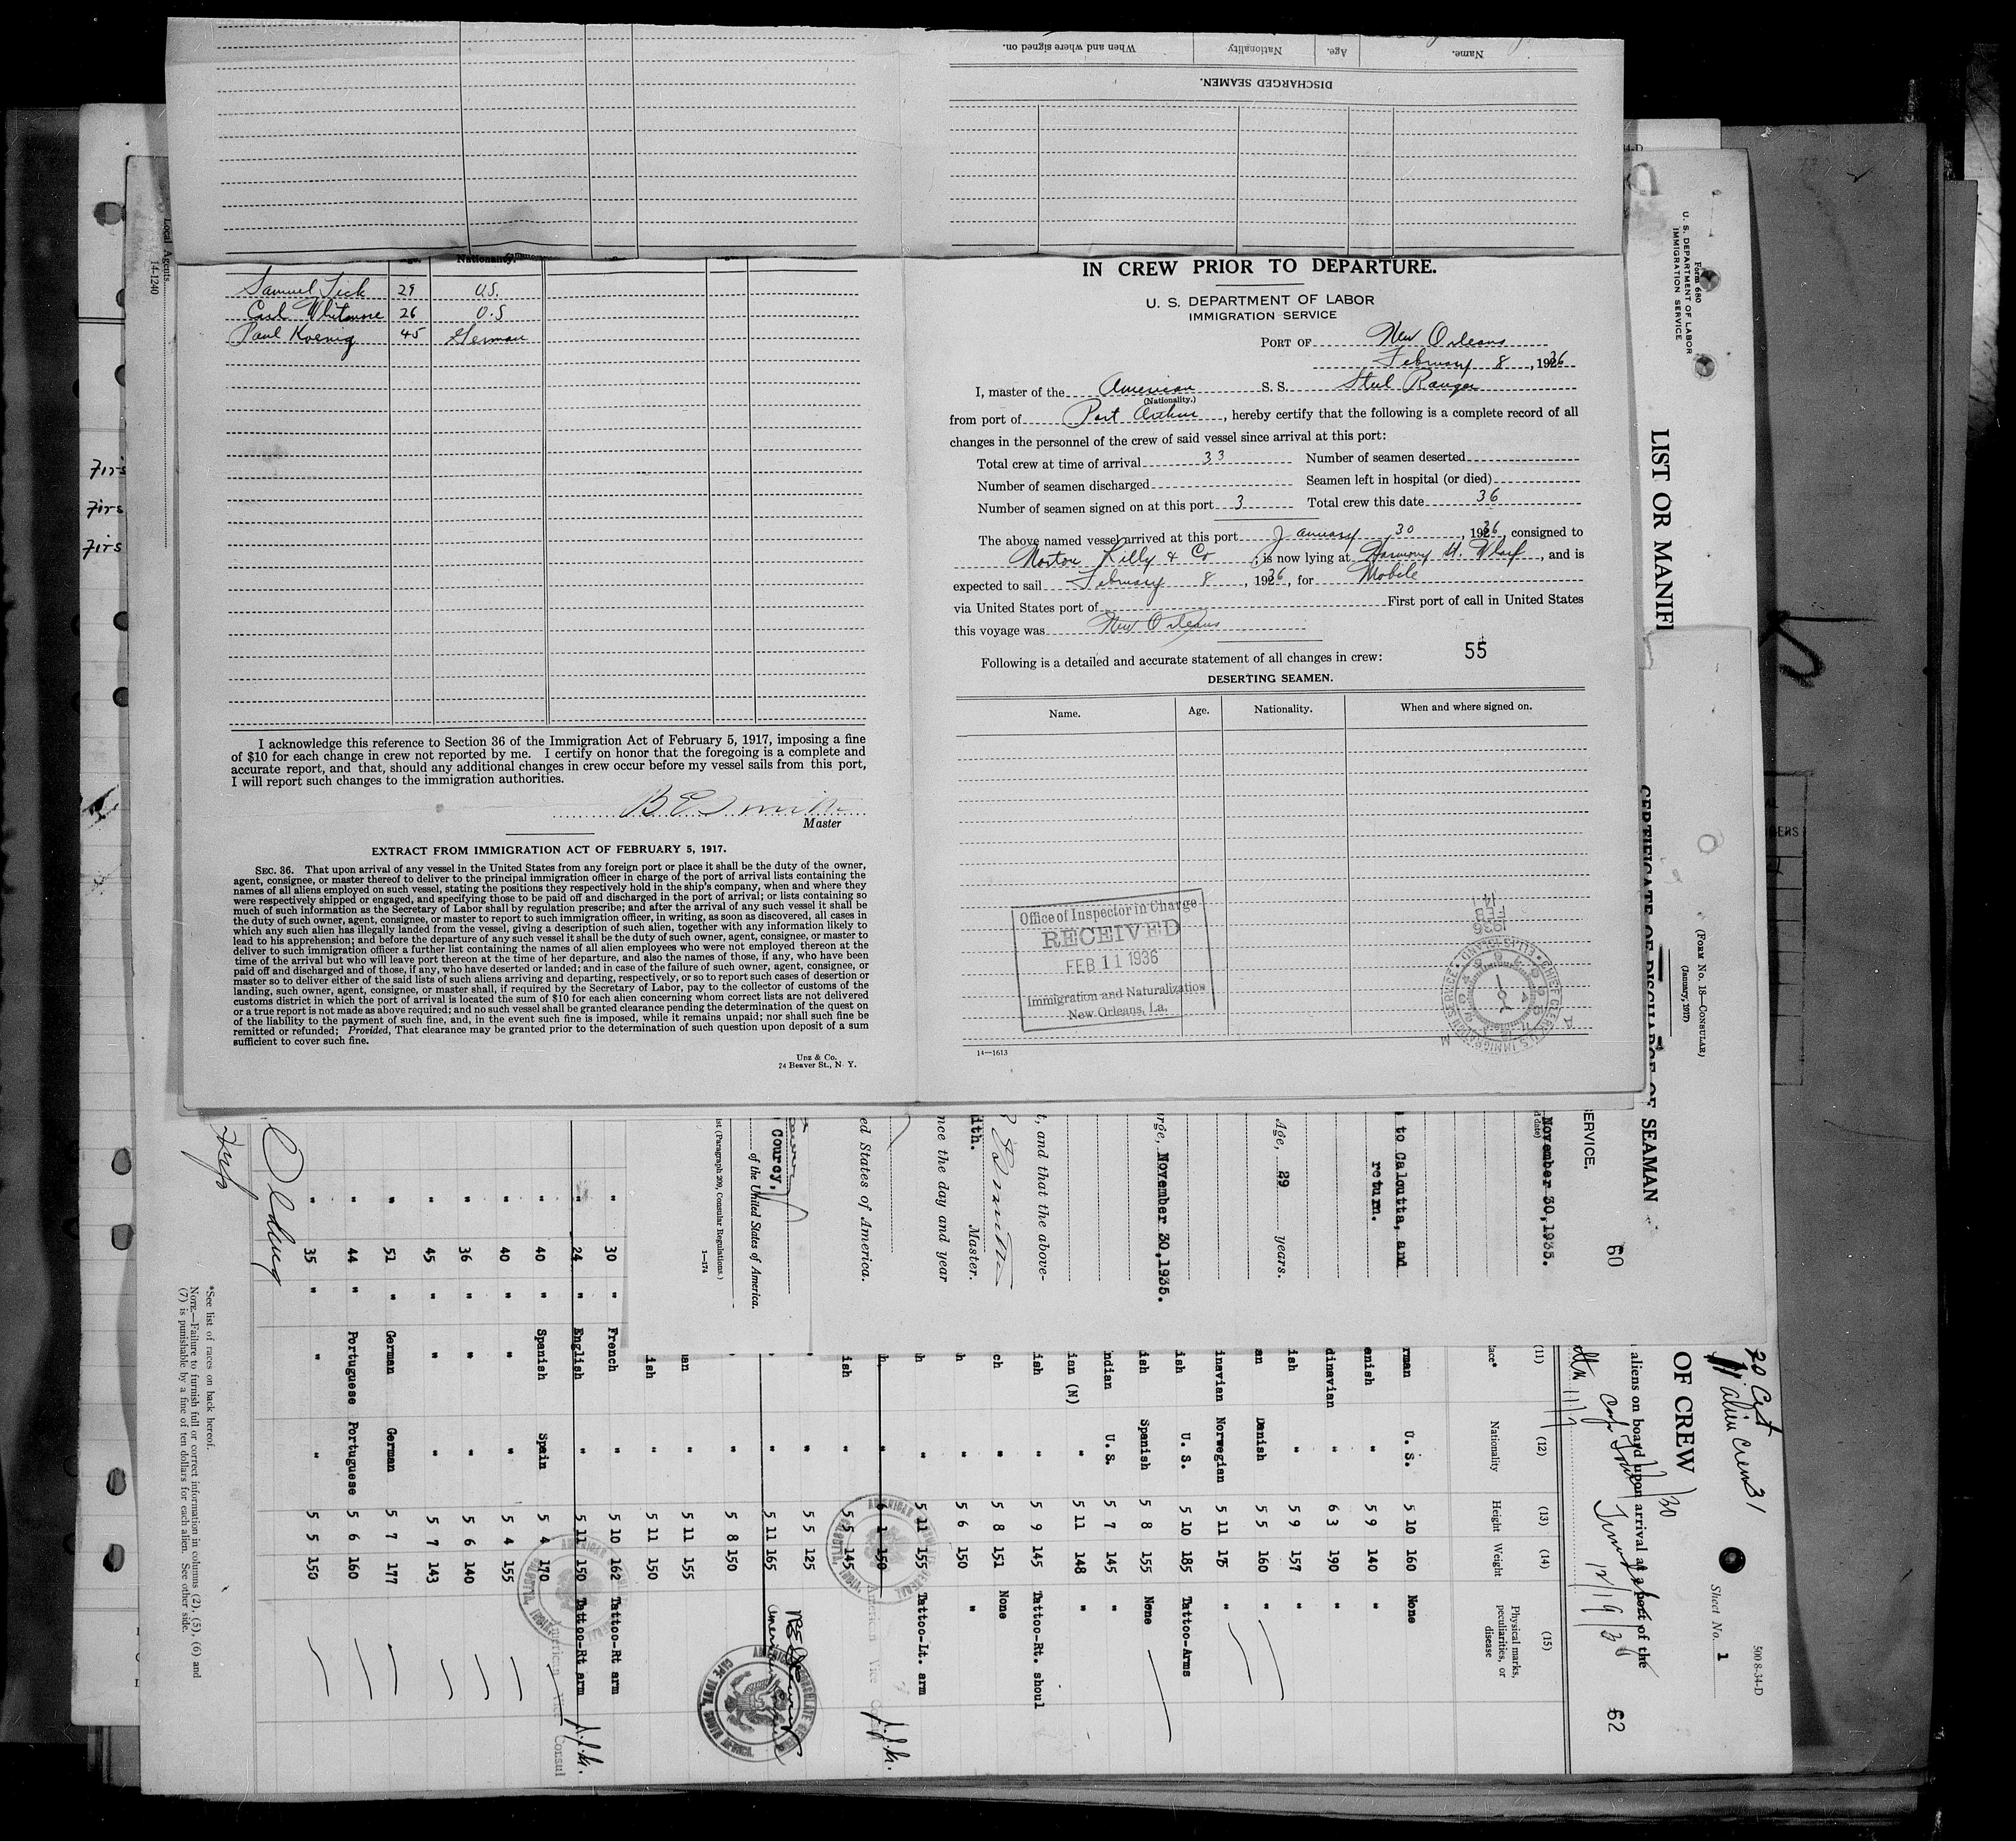 When and where signed on.
Nationality
Age.
Name.
DISCHARGED SEAMEN.
Local Agents
14-1240
Nationality.
Samuel 29 U.S.
Carl Whitmore 26 U.S
Paul Koenig 45 German
I acknowledge this reference to Section 36 of the Immigration Act of February 5, 1917, imposing a fine
of $10 for each change in crew not reported by me. I certify on honor that the foregoing is a complete and
accurate report, and that, should any additional changes in crew occur before my vessel sails from this port,
I will report such changes to the immigration authorities.
B E Smith
Master
EXTRACT FROM IMMIGRATION ACT OF FEBRUARY 5, 1917.
SEC. 36. That upon arrival of any vessel in the United States from any foreign port or place it shall be the duty of the owner,
agent, consignee, or master thereof to deliver to the principal immigration officer in charge of the port of arrival lists containing the
names of all aliens employed on such vessel, stating the positions they respectively hold in the ship's company, when and where they
were respectively shipped or engaged, and specifying those to be paid off and discharged in the port of arrival; or lists containing so
much of such information as the Secretary of Labor shall by regulation prescribe; and after the arrival of any such vessel it shall be
the duty of such owner, agent, consignee, or master to report to such immigration officer, in writing, as soon as discovered, all cases in
which any such alien has illegally landed from the vessel, giving a description of such alien, together with any information likely to
lead to his apprehension; and before the departure of any such vessel it shall be the duty of such owner, agent, consignee, or master to
deliver to such immigration officer a further list containing the names of all alien employees who were not employed thereon at the
time of the arrival but who will leave port thereon at the time of her departure, and also the names of those, if any, who have been
paid off and discharged and of those, if any, who have deserted or landed; and in case of the failure of such owner, agent, consignee, or
master so to deliver either of the said lists of such aliens arriving and departing, respectively, or so to report such cases of desertion or
landing, such owner, agent, consignee, or master, shall, if required by the Secretary of Labor, pay to the collector of customs of the
customs district in which the port of arrival is located the sum of $10 for each alien concerning whom correct lists are not delivered
or a true report is not made as above required; and no such vessel shall be granted clearance pending the determination of the quest on
of the liability to the payment of such fine, and, in the event such fine is imposed, while it remains unpaid; nor shall such fine be
remitted or refunded; Provided, That clearance may be granted prior to the determination of such question upon deposit of a sum
sufficient to cover such fine.
Unz & Co.
24 Beaver St., N. Y.
IN CREW PRIOR TO DEPARTURE.
U. S. DEPARTMENT OF LABOR
IMMIGRATION SERVICE
PORT OF New Orleans
February 8, 1936
I, master of the American S. S. Steel Ranger
(Nationality.)
from port of Port Arthur, hereby certify that the following is a complete record of all
changes in the personnel of the crew of said vessel since arrival at this port:
Total crew at time of arrival 33 Number of seamen deserted
Number of seamen discharged Seamen left in hospital (or died)
Number of seamen signed on at this port 3 Total crew this date 36
The above named vessel arrived at this port January 30, 1936, consigned to
Norton Lilly & Co; is now lying at Harmony St. Wharf, and is
expected to sail February 8, 1936, for Mobile
via United States port of First port of call in United States
this voyage was New Orleans
Following is a detailed and accurate statement of all changes in crew: 55
DESERTING SEAMEN.
Name. Age. Nationality. When and where signed on.
Office of Inspector in Charge
RECEIVED
FEB 11 1936
Immigration and Naturalization
New Orleans, La.
1936
FEB
14
CHIEF CLERK U.S. IMMIGRATION SERVICE ELLIS ISLAND
14—1613
Form 680
U. S. DEPARTMENT OF LABOR
IMMIGRATION SERVICE
LIST OR MANIFE
(FORM No. 18—CONSULAR)
(January, 1917)
CERTIFICATE OF DISCHARGE OF SEAMAN
60
ERVICE.
November 30, 1935.
to Calcutta, and
return.
Age, 29 years.
rge, November 30, 1935.
t, and that the above-
ith. Master.
nce the day and year
ed States of America.
Courcy,
of the United States of America.
ist (Paragraph 209, Consular Regulations.)
1—174
500 8-34-D
Sheet No. 1
20 Cert
11 alien Crew 31
OF CREW
aliens on board upon arrival at a port of the
62
(11) (12) (13) (14) (15)
Race* Nationality Height Weight Physical marks, peculiarities, or disease
rman U. S. 5 10 160 None
enish " 5 9 140 "
dinavian " 6 3 190 "
ish " 5 9 157 "
an Danish 5 5 160 "
inavian Norwegian 5 11 175 "
ish U. S. 5 10 185 Tattoo-Arms
ish Spanish 5 8 155 None
ndian U. S. 5 7 145 "
ian (N) " 5 11 148 "
ish " 5 9 145 Tattoo-Rt. shoul
ch " 5 8 151 None
h " 5 6 150 "
h " 5 11 155 Tattoo-Lt. arm
h. " 6 1 150
ish " 5 5 145
" " 5 5 125
" " 5 11 165
" 5 8 150
an " 5 11 155
ish " 5 11 150
" 30 " French " 5 10 162 Tattoo-Rt arm
" 24 " English " 5 11 150 Tattoo-Rt arm
" 40 " Spanish Spain 5 4 170
" 40 " " " 5 4 155
" 36 " " " 5 6 140
" 45 " " " 5 7 143
" 51 " German German 5 7 177
" 44 " Portuguese Portuguese 5 6 160
" 35 " " " 5 5 150
American Vice Consul
*See list of races on back hereof.
NOTE.—Failure to furnish full or correct information in columns (2), (5), (6) and
(7) is punishable by a fine of ten dollars for each alien. See other side.